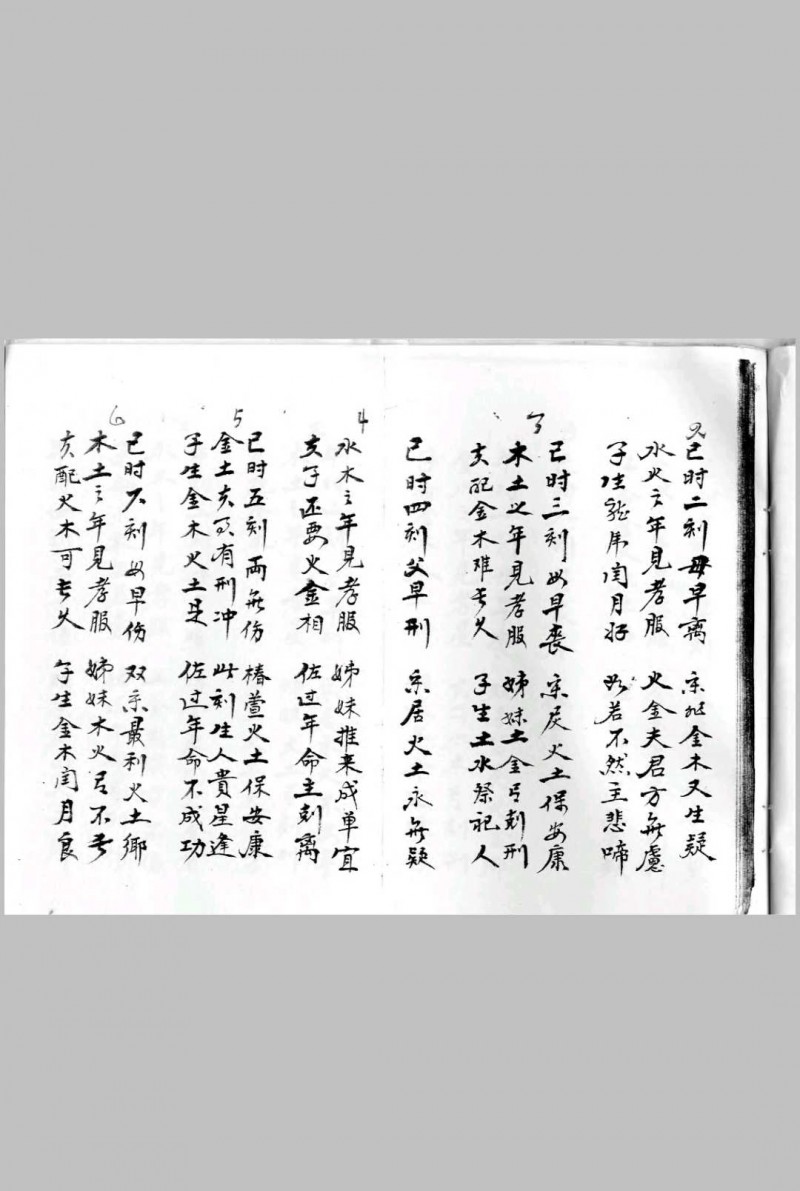 2
巳时二刻母早离 亲 金木又生疑
水火之年见孝服 火金夫君方無慮
子生龍虎闰月好 若不然主悲啼
3
巳时三刻母早丧 亲 火土保安康
木土之年见孝服 姊妹土金弓刻刑
夫配金木难长久 子生土水祭祀人
4
巳时四刻父早刑 亲居火土永無疑
水木之年见孝服 姊妹推来成单宜
夫子还要火金相 佐过年命主刻离
5
巳时五刻両無伤 椿萱火土保安康
金土夫 有刑冲 此刻生人貴星逢
子生金木火土是 佐过年命不成功
6
巳时六刻母早伤 双亲最利火土鄉
木土之年见孝服 姊妹木火弓不
夫配火木可长久 子生金木闰月良